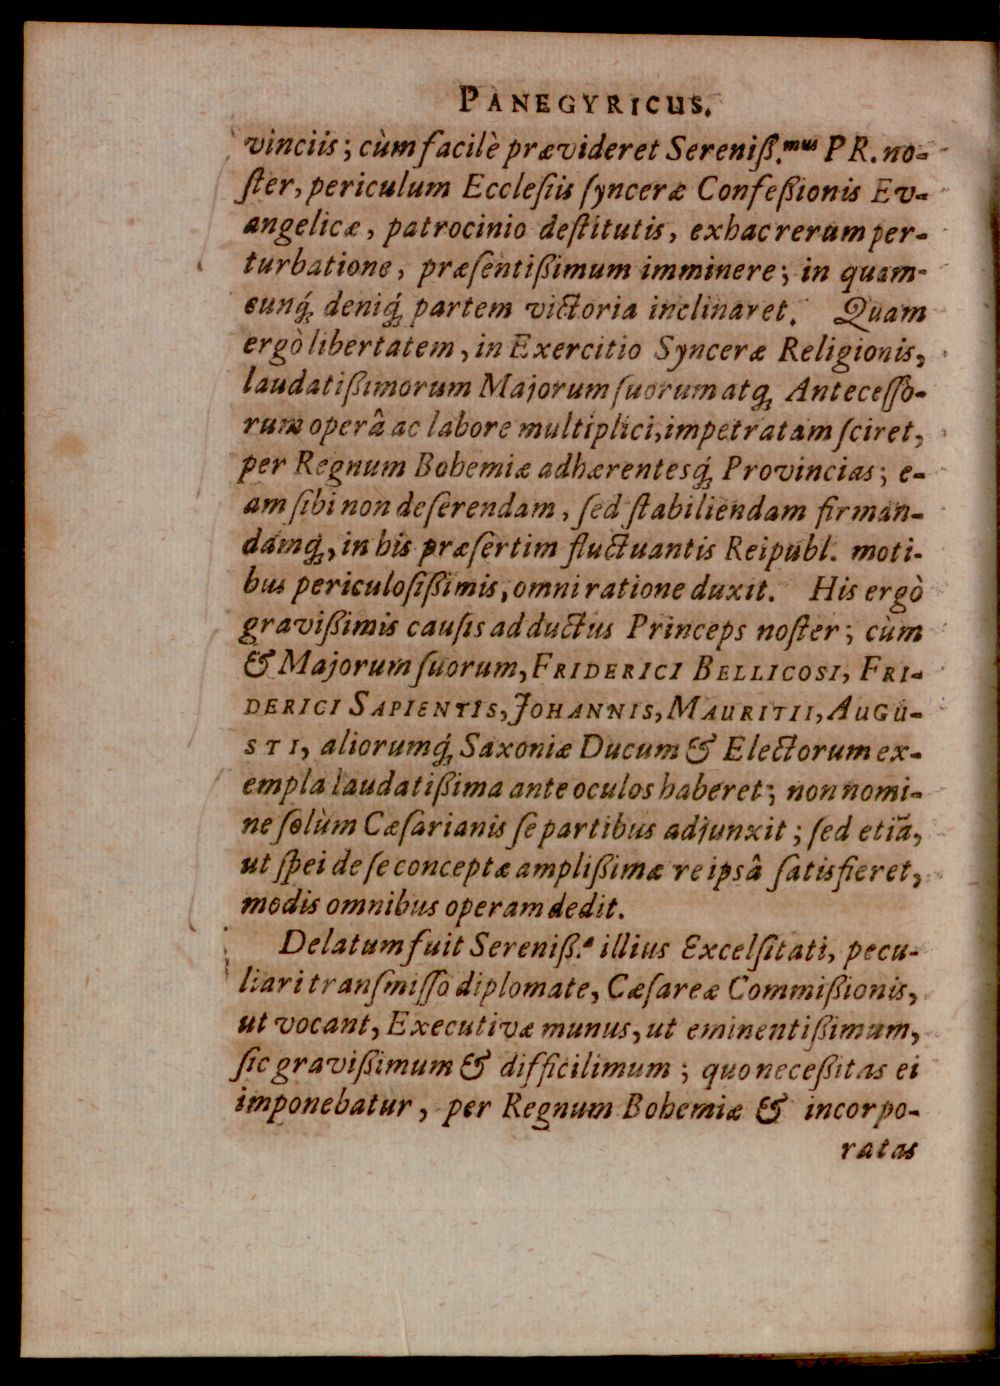 PANEGYRICUS.
vinciis; cùm facilè prævideret Sereniß.mus PR. no-
ſter, periculum Eccleſiis ſynceræ Confeßionis Ev-
angelicæ, patrocinio deſtitutis, ex hac rerum per-
turbatione, præſentißimum imminere; in quam-
cunq́; deniq́; partem victoria inclinaret. Quam
ergò libertatem, in Exercitio Synceræ Religionis,
laudatißimorum Majorum ſuorum atq; Anteceſſo-
rum operâ ac labore multiplici, impetratam ſciret,
per Regnum Bohemiæ adhærentesq́; Provincias; e-
am ſibi non deſerendam, ſed ſtabiliendam firman-
damq́;, in his præſertim fluctuantis Reipubl. moti-
bus periculoſißimis, omni ratione duxit. His ergò
gravißimis cauſis adductus Princeps noſter; cùm
& Majorum ſuorum, FRIDERICI BELLICOSI, FRI-
DERICI SAPIENTIS, JOHANNIS, MAURITII, AUGU-
STI, aliorumq́; Saxoniæ Ducum & Electorum ex-
empla laudatißima ante oculos haberet; non nomi-
ne ſolùm Cæſarianis ſe partibus adjunxit; ſed etiã,
ut ſpei de ſe conceptæ amplißimæ re ipsâ ſatisfieret,
modis omnibus operam dedit.
Delatum fuit Sereniß.æ illius Excelſitati, pecu-
liari tranſmiſſo diplomate, Cæſareæ Commißionis,
ut vocant, Executivæ munus, ut eminentißimum,
ſic gravißimum & difficilimum; quo neceßitas ei
imponebatur, per Regnum Bohemiæ & incorpo-
ratas